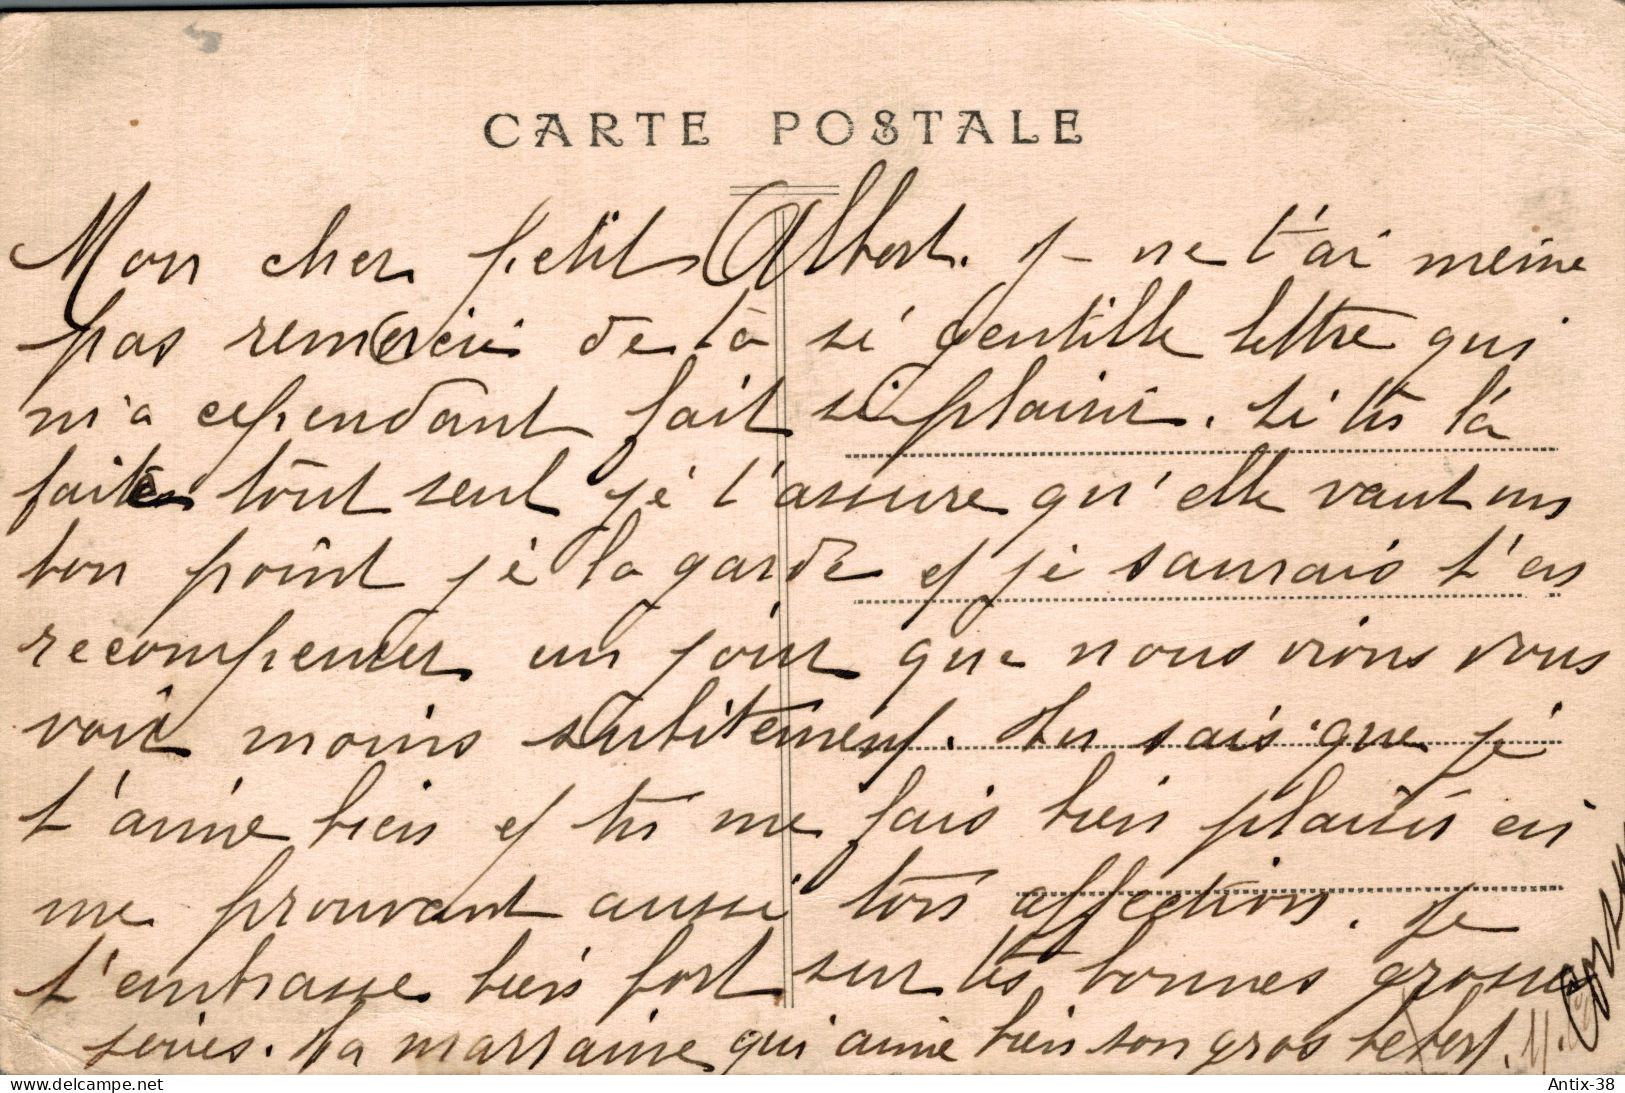 CARTE POSTALE
Mon cher petit Albert. J– ne t'ai meme
pas remercié de ta si gentille lettre qui
m'a cependant fait si plaisir. Si tu l'a
faite tout seul je t'assure qu'elle vaut un
bon point je la garde et je saurais t'en
recompenser un jour que nous irions vous
voir moins subitement. Tu sais que je
t'aime bien et tu me fais bien plaisir en
me prouvant aussi ton affection. Je
t'embrasse bien fort sur tes bonnes grosses
joues. Ta marraine qui aime bien son gros bebert.
delcampe.net
Antix-38